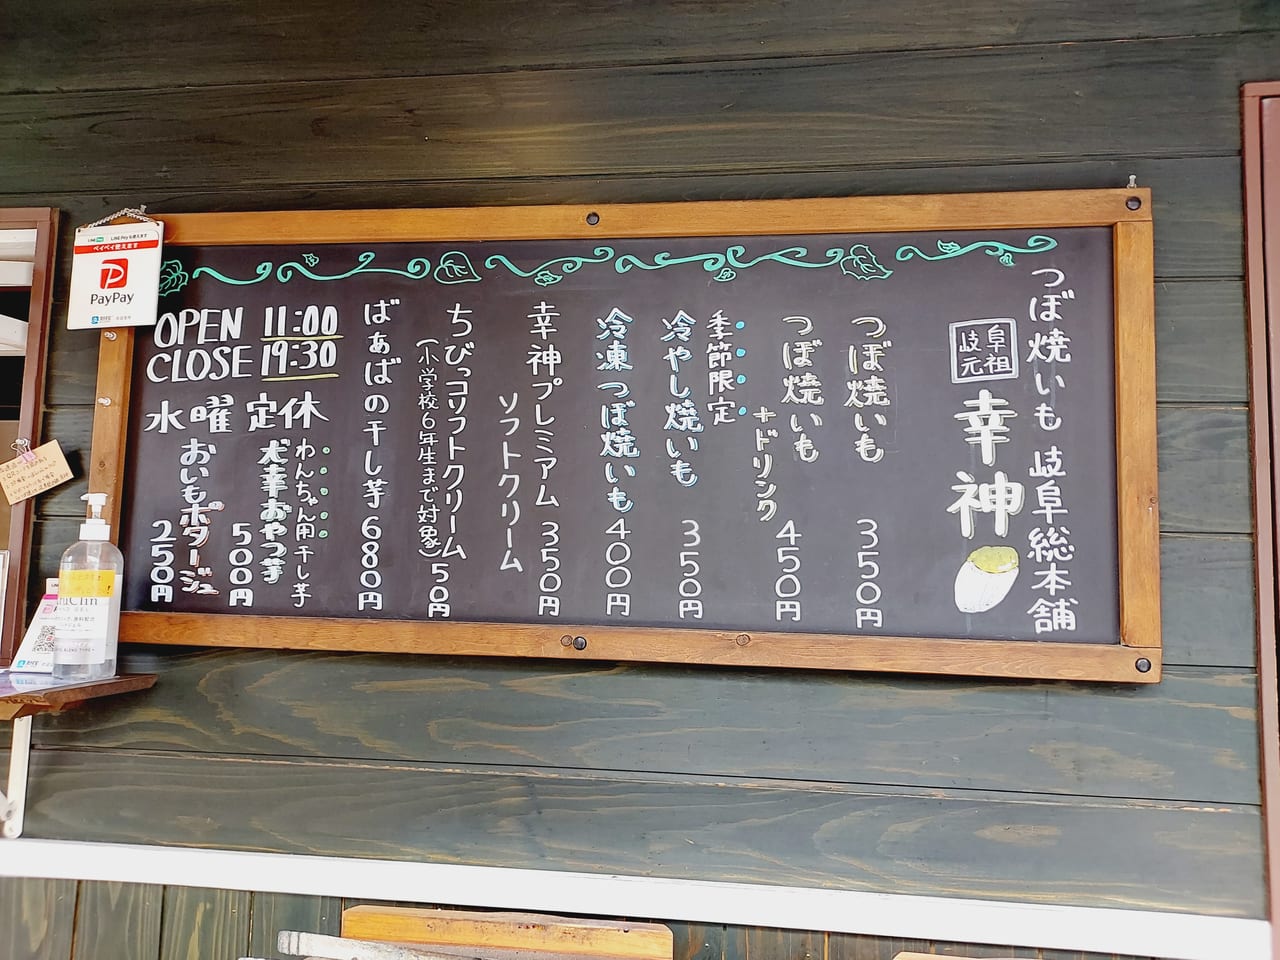 つぼ焼いも 岐阜総本舗
岐阜
元祖
幸神
つぼ焼いも 350円
つぼ焼いも
+ドリンク 450円
季節限定
冷やし焼いも 350円
冷凍つぼ焼いも 400円
幸神プレミアム
ソフトクリーム 350円
ちびっコソフトクリーム 50円
(小学校6年生まで対象)
ばぁばの干し芋 680円
OPEN 11:00
CLOSE 19:30
水曜定休
わんちゃん用干し芋
犬幸おやつ芋 500円
おいもポタージュ 250円
ペイペイ使えます
PayPay